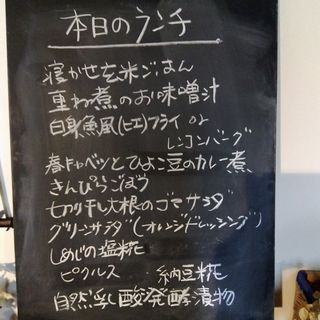 本日のランチ
寝かせ玄米ごはん
重ね煮のお味噌汁
白身魚風(ヒエ)フライ or
レンコンバーグ
春キャベツとひよこ豆のカレー煮
きんぴらごぼう
切り干し大根のゴマサラダ
グリーンサラダ(オレンジドレッシング)
しめじの塩糀
ピクルス ・納豆糀
自然乳酸発酵漬物